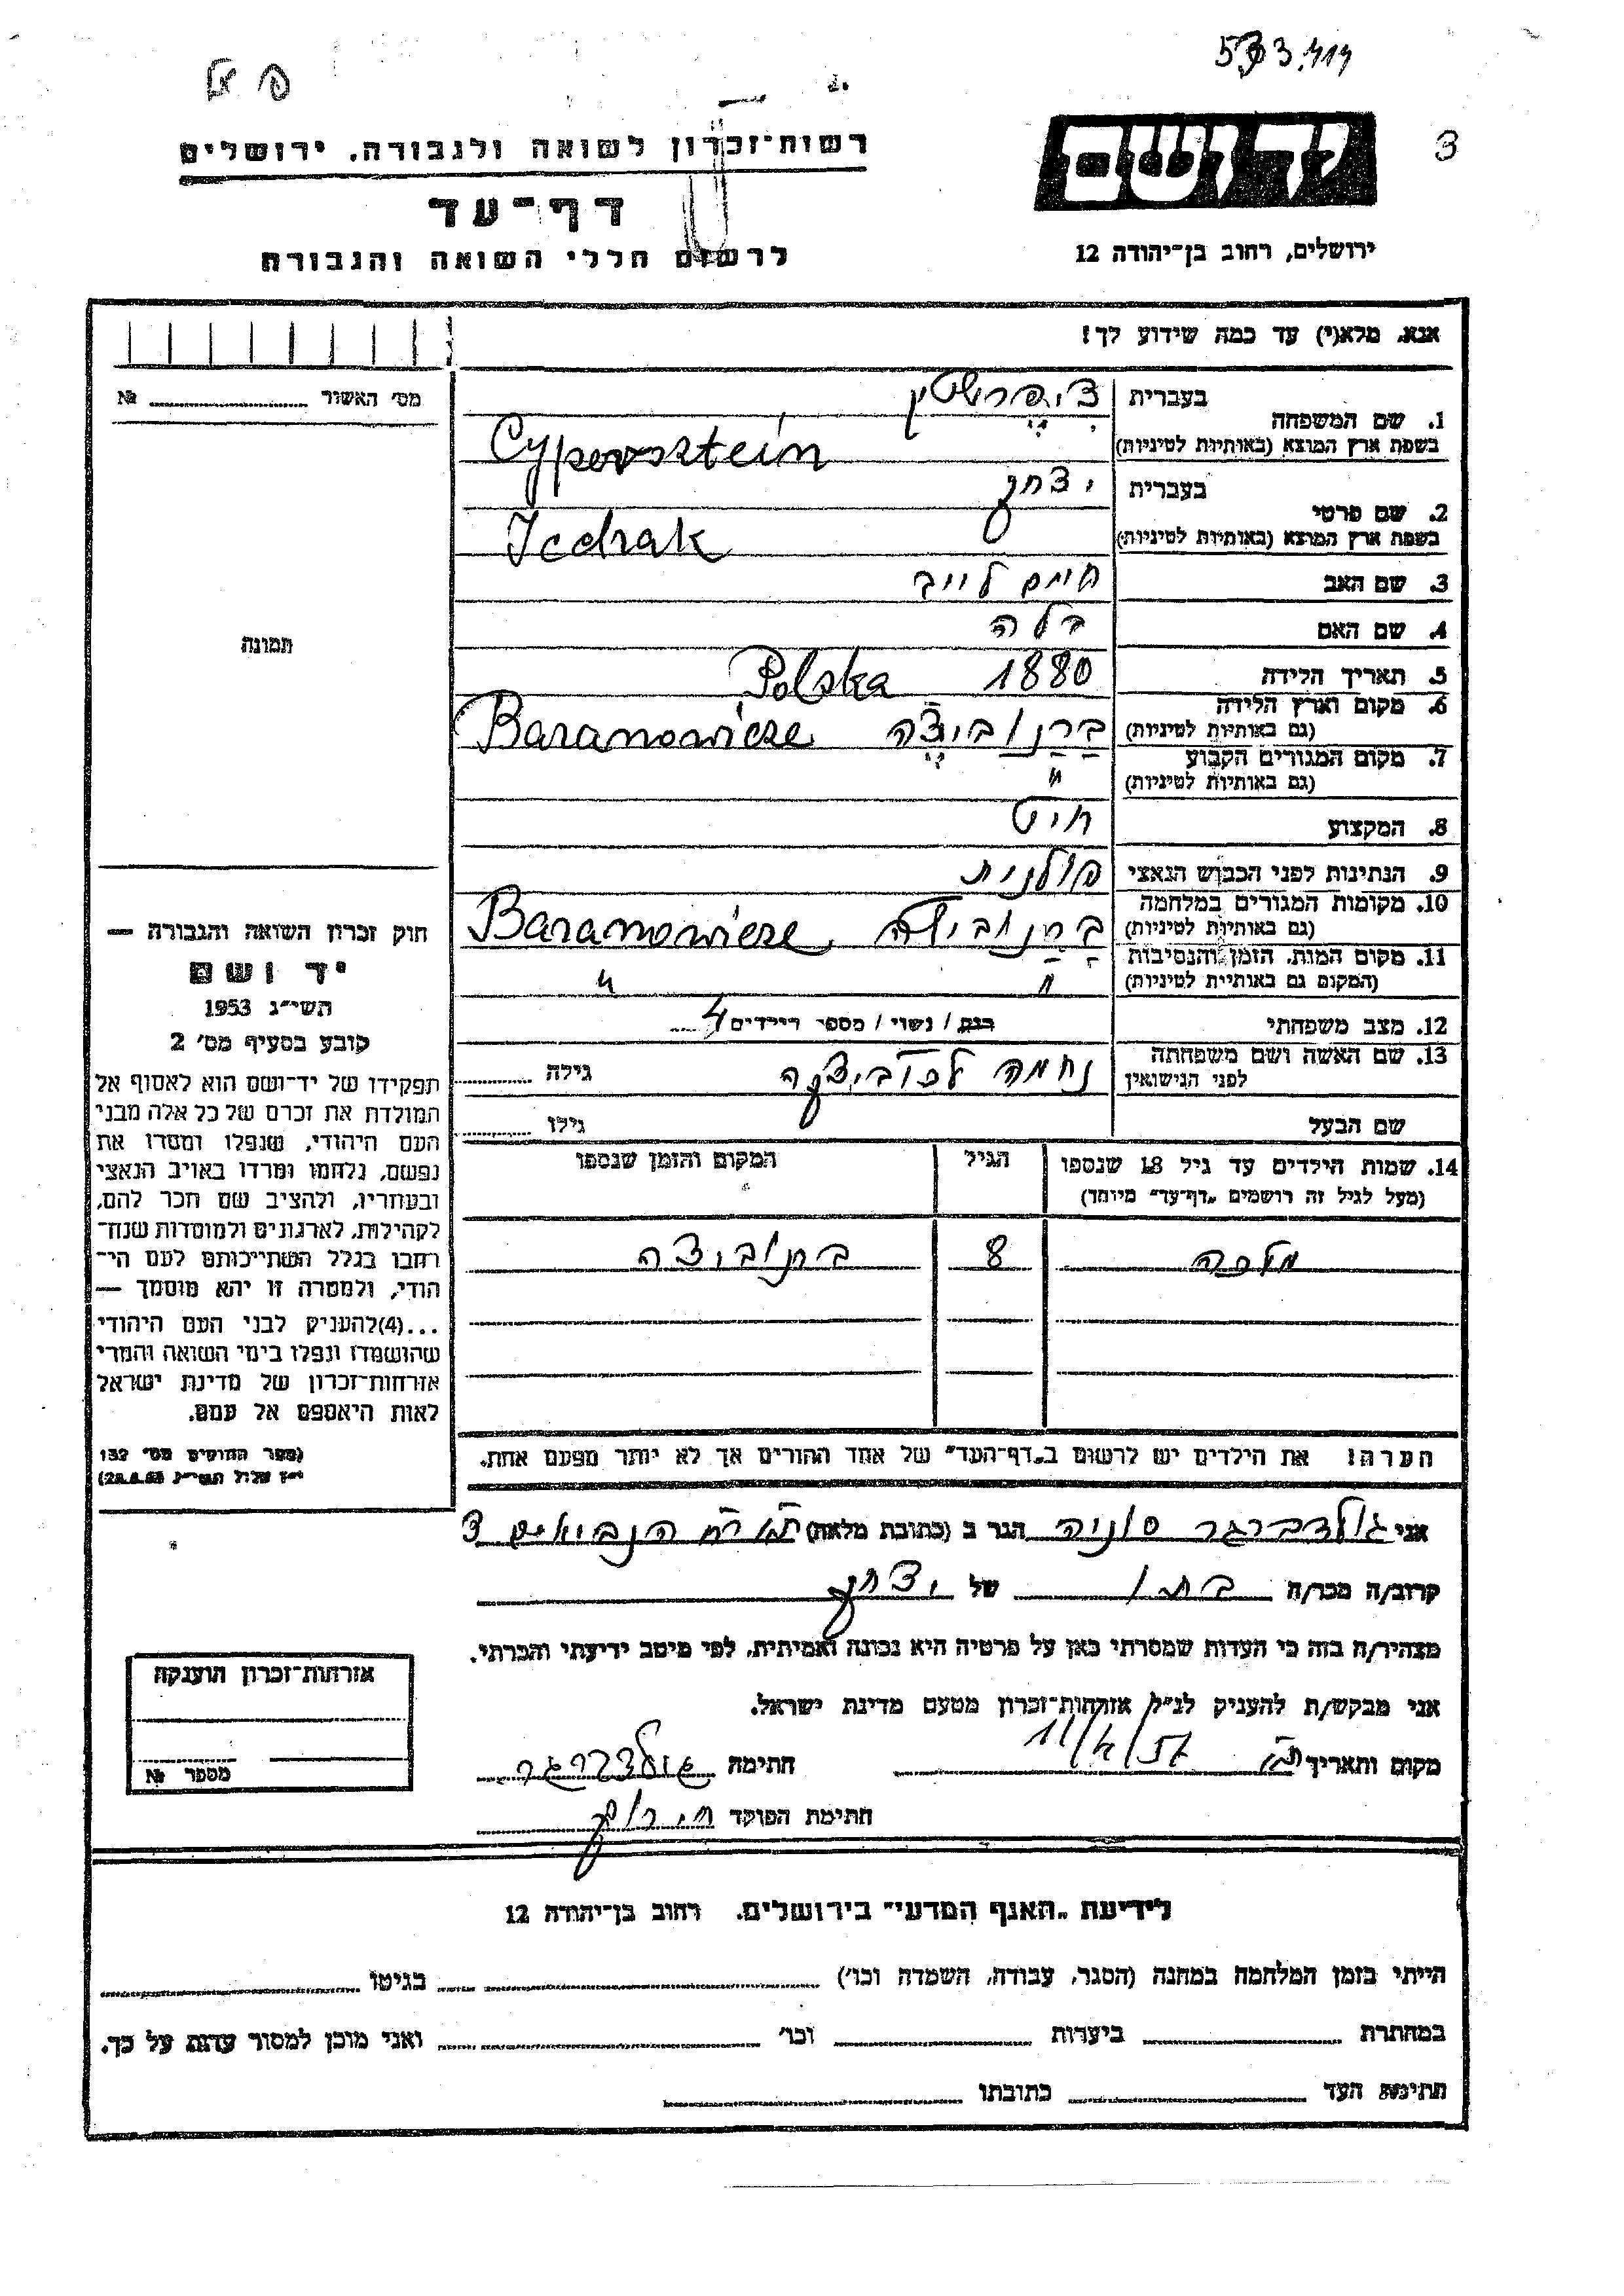 3
יד ושם
ירושלים, רחוב בן־יהודה 12
רשות־זכרון לשואה ולגבורה, ירושלים
דף־עד
לרשום חללי השואה והגבורה
אנא, מלא(י) עד כמה שידוע לך!
1. שם המשפחה
בעברית ציפרשטין
בשפת ארץ המוצא (באותיות לטיניות) Cypersztein
2. שם פרטי
בעברית יצחק
בשפת ארץ המוצא (באותיות לטיניות) Icchak
3. שם האב חיים לייב
4. שם האם בלה
5. תאריך הלידה 1880 Polska
6. מקום וארץ הלידה
(גם באותיות לטיניות) ברנוביצה Baranowicze
7. מקום המגורים הקבוע
(גם באותיות לטיניות) "
8. המקצוע חיט
9. הנתינות לפני הכבוש הנאצי פולנית
10. מקומות המגורים במלחמה
(גם באותיות לטיניות) ברנוביצה Baranowicze
11. מקום המות, הזמן והנסיבות
(המקום גם באותיות לטיניות) " "
12. מצב משפחתי רווק / נשוי / מספר הילדים 4
13. שם האשה ושם משפחתה
לפני הנישואין נחמה גילה
שם הבעל גילו
14. שמות הילדים עד גיל 18 שנספו
(מעל לגיל זה רושמים "דף־עד" מיוחד)
הגיל
המקום והזמן שנספו
מלכה 8 ברנוביצה
הערה! את הילדים יש לרשום ב"דף־העד" של אחד ההורים אך לא יותר מפעם אחת.
אני גולדברגר סוניה הגר ב (כתובת מלאה) הנביאים
קרוב/ה מכר/ה בתו של יצחק
מצהיר/ה בזה כי העדות שמסרתי כאן על פרטיה היא נכונה ואמיתית, לפי מיטב ידיעתי והכרתי.
אני מבקש/ת להעניק לנ"ל אזרחות־זכרון מטעם מדינת ישראל.
מקום ותאריך חתימה גולדברגר
חתימת הפוקד
מס' האשור №
תמונה
חוק זכרון השואה והגבורה —
יד ושם
תשי"ג 1953
קובע בסעיף מס' 2
תפקידו של יד־ושם הוא לאסוף אל
המולדת את זכרם של כל אלה מבני
העם היהודי, שנפלו ומסרו את
נפשם, נלחמו ומרדו באויב הנאצי
ובעוזריו, ולהציב שם וזכר להם,
לקהילות, לארגונים ולמוסדות שנח־
רבו בגלל השתייכותם לעם הי־
הודי, ולמטרה זו יהא מוסמך —
...(4)להעניק לבני העם היהודי
שהושמדו ונפלו בימי השואה והמרי
אזרחות־זכרון של מדינת ישראל
לאות היאספם אל עמם.
(ספר החוקים מס' 132
אזרחות־זכרון הוענקה
מספר №
לידיעת "האגף המדעי" בירושלים, רחוב בן־יהודה 12
הייתי בזמן המלחמה במחנה (הסגר, עבודה, השמדה וכו') בגיטו
במחתרת ביערות וכו' ואני מוכן למסור עדות על כך.
חתימת העד כתובתו